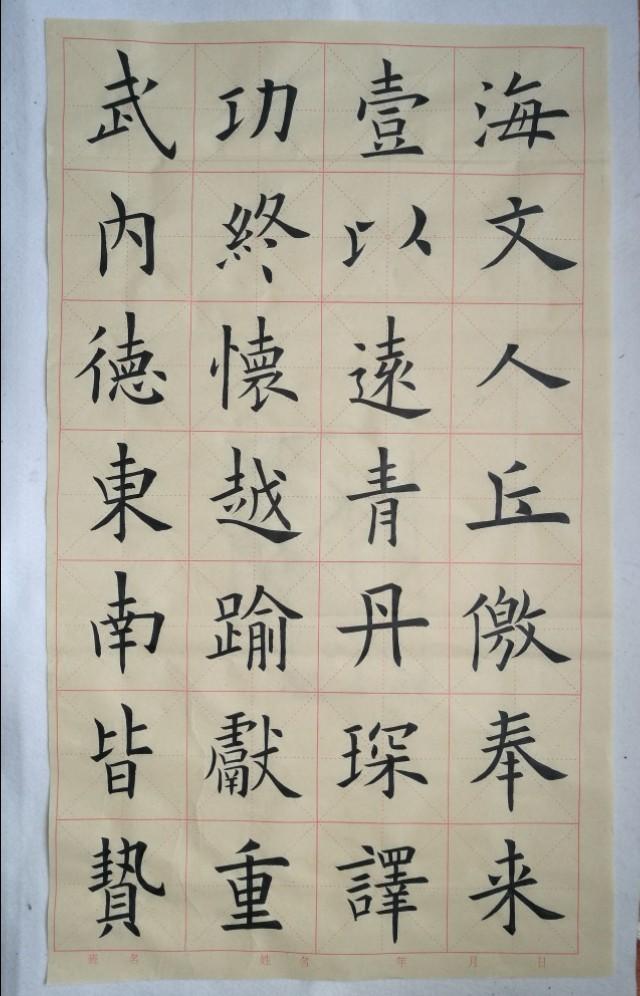 武功壹海
內終以文
徳懷遠人
東越青丘
南踰丹儌
皆獻琛奉
贄重譯来
班 名 姓 名 年 月 日